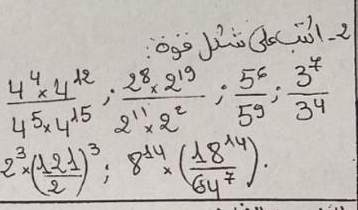 2- اكتب على شكل قوة:
4⁴×4¹²/4⁵×4¹⁵ ; 2⁸×2¹⁹/2¹¹×2² ; 5⁶/5⁹ ; 3⁷/3⁴
2³×(121/2)³ ; 8¹⁴×(18¹⁴/64⁷).